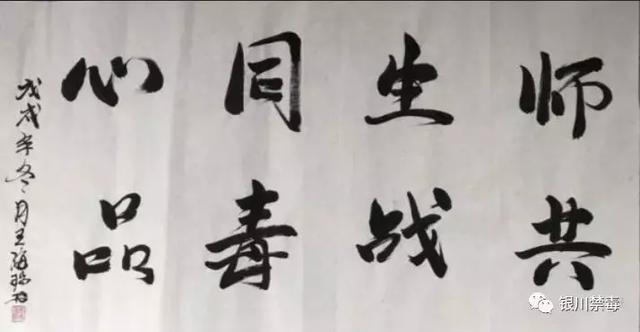 师生同心
共战毒品
戊戌年冬月王
银川禁毒